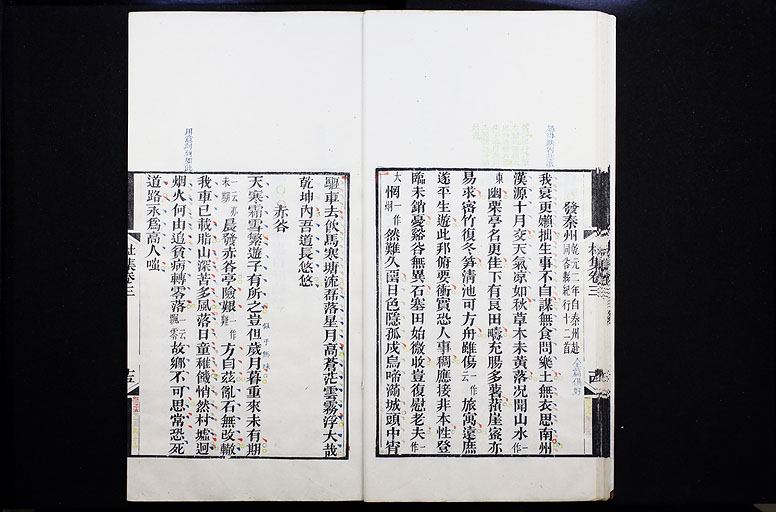 發秦州乾元二年自秦州赴同谷縣紀行十二首
我衰更嬾拙生事不自謀無食問樂土無衣思南州
漢源十月交天氣涼如秋草木未黃落况聞山水一作
東幽栗亭名更佳下有良田疇充腸多薯蕷崖蜜亦
易求密竹復冬笋清池可方舟雖傷一云旅寓遠庶
遂平生遊此邦俯要衝實恐人事稠應接非本性登
臨未銷憂谿谷無異石塞田始微收豈復慰老夫一作
大惘一作然難久留日色隱孤戍烏啼滿城頭中宵
驅車去飲馬寒塘流磊落星月高蒼茫雲霧浮大哉
乾坤內吾道長悠悠
赤谷
天寒霜雪繁遊子有所之豈但歲月暮重來未有期
一云亦未期晨發赤谷亭險艱一作難方自茲亂石無改轍
我車已載脂山深苦多風落日童稚饑悄然村墟迥
烟火何由追貧病轉零落一云飄零故鄉不可思常恐死
道路永爲高人嗤
杜集卷三